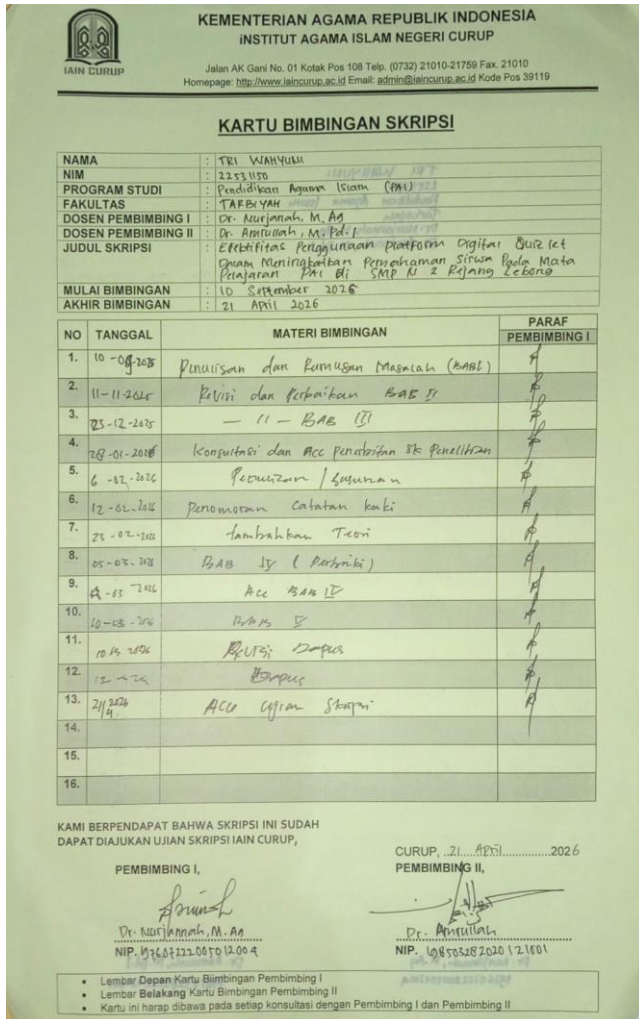 KEMENTERIAN AGAMA REPUBLIK INDONESIA
INSTITUT AGAMA ISLAM NEGERI CURUP
IAIN CURUP
Jalan AK Gani No. 01 Kotak Pos 108 Telp. (0732) 21010-21759 Fax. 21010
Homepage: http://www.iaincurup.ac.id Email: admin@iaincurup.ac.id Kode Pos 39119
KARTU BIMBINGAN SKRIPSI
NAMA : TRI WAHYUNI
NIM : 22531150
PROGRAM STUDI : Pendidikan Agama Islam (PAI)
FAKULTAS : TARBIYAH
DOSEN PEMBIMBING I : Dr. Nurjanah, M. Ag
DOSEN PEMBIMBING II : Dr. Amrullah, M. Pd. I
JUDUL SKRIPSI : Efektifitas Penggunaan Platform Digital Quizlet
Dalam Meningkatkan Pemahaman Siswa Pada Mata
Pelajaran PAI di SMP N 2 Rejang Lebong
MULAI BIMBINGAN : 10 September 2025
AKHIR BIMBINGAN : 21 April 2026
NO TANGGAL MATERI BIMBINGAN PARAF
PEMBIMBING I
1. 10-09-2025 Penulisan dan Rumusan Masalah (BAB I)
2. 11-11-2025 Revisi dan Perbaikan BAB II
3. 23-12-2025 — 11 — BAB III
4. 28-01-2026 Konsultasi dan Acc Penerbitan SK Penelitian
5. 6-02-2026 Penulisan / Susunan
6. 12-02-2026 Penomoran Catatan kaki
7. 23-02-2026 tambahkan Teori
8. 05-03-2026 BAB IV (Perbaiki)
9. -03-2026 Acc BAB IV
10. 10-03-2026 BAB V
11. Revisi Dapus
12. Dapus
13. 21/4 2026 Acc Ujian Skripsi
14.
15.
16.
KAMI BERPENDAPAT BAHWA SKRIPSI INI SUDAH
DAPAT DIAJUKAN UJIAN SKRIPSI IAIN CURUP,
CURUP, 21 April 2026
PEMBIMBING I,
PEMBIMBING II,
Dr. Nurjannah, M. Ag
NIP. 197607222005012004
Dr. Amrullah
NIP. 198503282020121001
• Lembar Depan Kartu Biimbingan Pembimbing I
• Lembar Belakang Kartu Bimbingan Pembimbing II
• Kartu ini harap dibawa pada setiap konsultasi dengan Pembimbing I dan Pembimbing II